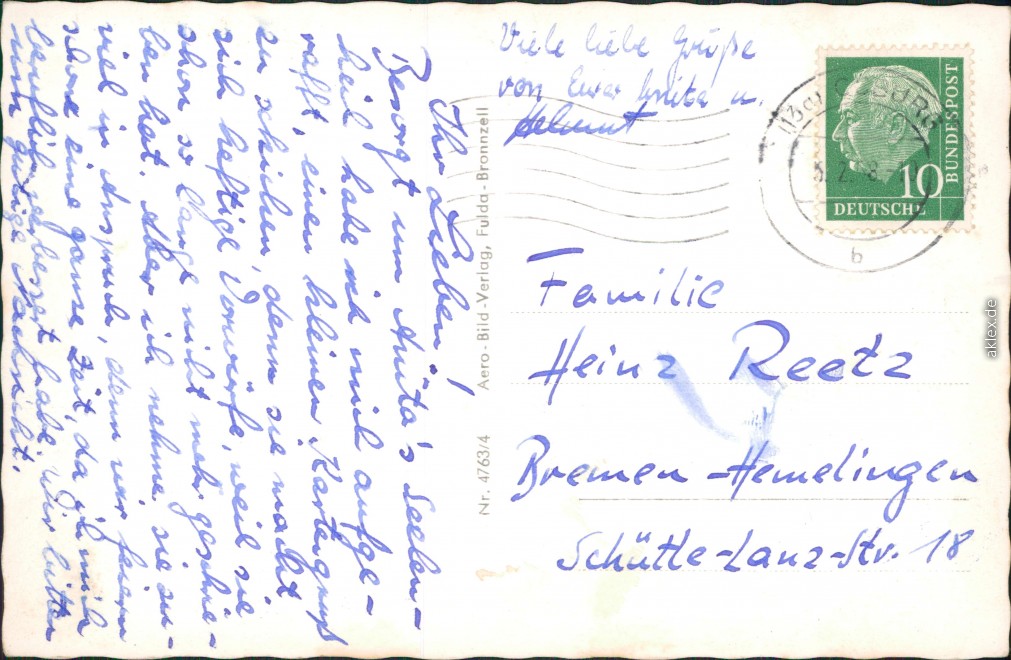 Ihr Lieben!
Besorgt um Anita's Seelen-
heil habe ich mich aufge-
rafft, einen kleinen Kartengruß
zu schicken, denn sie macht
sich heftige Vorwürfe, weil sie
schon so lange nicht mehr geschrie-
ben hat. Aber ich nehme sie zu
viel in Anspruch, denn wir feiern
schon eine ganze Zeit, da ich mich
beruflich verbessert habe. Wir bitten
um gütige Nachsicht.
Viele liebe Grüße
von Eurer Anita u.
Helmut
Nr. 4763/4 Aero-Bild-Verlag, Fulda-Bronnzell
10
DEUTSCHE
BUNDESPOST
b
Familie
Heinz Reetz
Bremen-Hemelingen
Schütte-Lanz-Str. 18
aklex.de